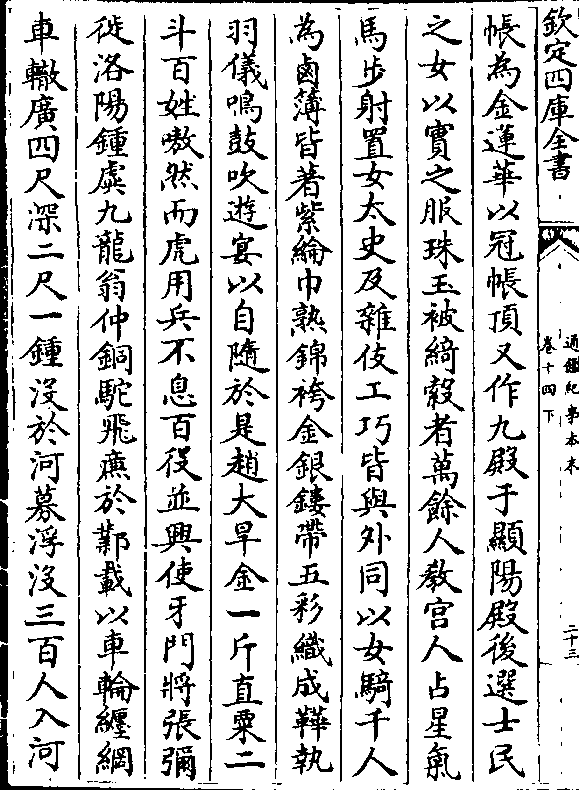 欽定四庫全書
通鑑紀事本末
卷十四下
二十三
帳為金蓮華以冠帳頂又作九殿于顯陽殿後選士民
之女以實之服珠玉被綺縠者萬餘人敎宫人占星氣
馬步射置女太史及雜伎工巧皆與外同以女騎千人
為鹵簿皆著紫綸巾熟錦袴金銀鏤帶五彩織成鞾執
羽儀鳴鼓吹遊宴以自隨於是趙大旱金一斤直粟二
斗百姓嗷然而虎用兵不息百役並興使牙門將張彌
徙洛陽鍾虡九龍翁仲銅駝飛亷於鄴載以車輪纒網
車轍廣四尺深二尺一鍾沒於河募浮沒三百人入河